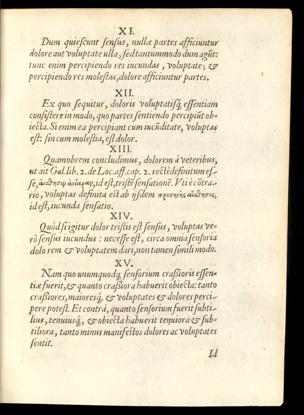 XI.
Dum quiescunt sensus, nullæ partes afficiuntur
dolore aut voluptate ulla, sed tantummodo dum agūt:
tunc enim percipiendo res iucundas, voluptate; &
percipiendo res molestas, dolore afficiuntur partes.
XII.
Ex quo sequitur, doloris voluptatisq́; essentiam
consistere in modo, quo partes sentiendo percipiūt ob-
iecta. Si enim ea percipiant cum iucūditate, voluptas
est: sin cum molestia, est dolor.
XIII.
Quamobrem concludimus, dolorem à veteribus,
ut ait Gal. lib. 2. de Loc. aff. cap. 2. rectè definitum es-
se, id est, tristē sensationē. Vti è cōtra-
rio, voluptas definita est ab ijsdem
id est, iucunda sensatio.
XIV.
Quòd si igitur dolor tristis est sensus, voluptas ve-
rò sensus iucundus: necesse est, circa omnia sensoria
dolorem & voluptatem dari, non tamen simili modo.
XV.
Nam quo unumquodq; sensorium crassioris essen-
tiæ fuerit, & quanto crassiora habuerit obiecta: tanto
crassiores, maioresq́; & voluptates & dolores perci-
pere potest. Et contrà, quanto sensorium fuerit subti-
lius, tenuiusq́; & obiecta habuerit tenuiora & sub-
tiliora, tanto minus manifestos dolores ac voluptates
sentit.
Id